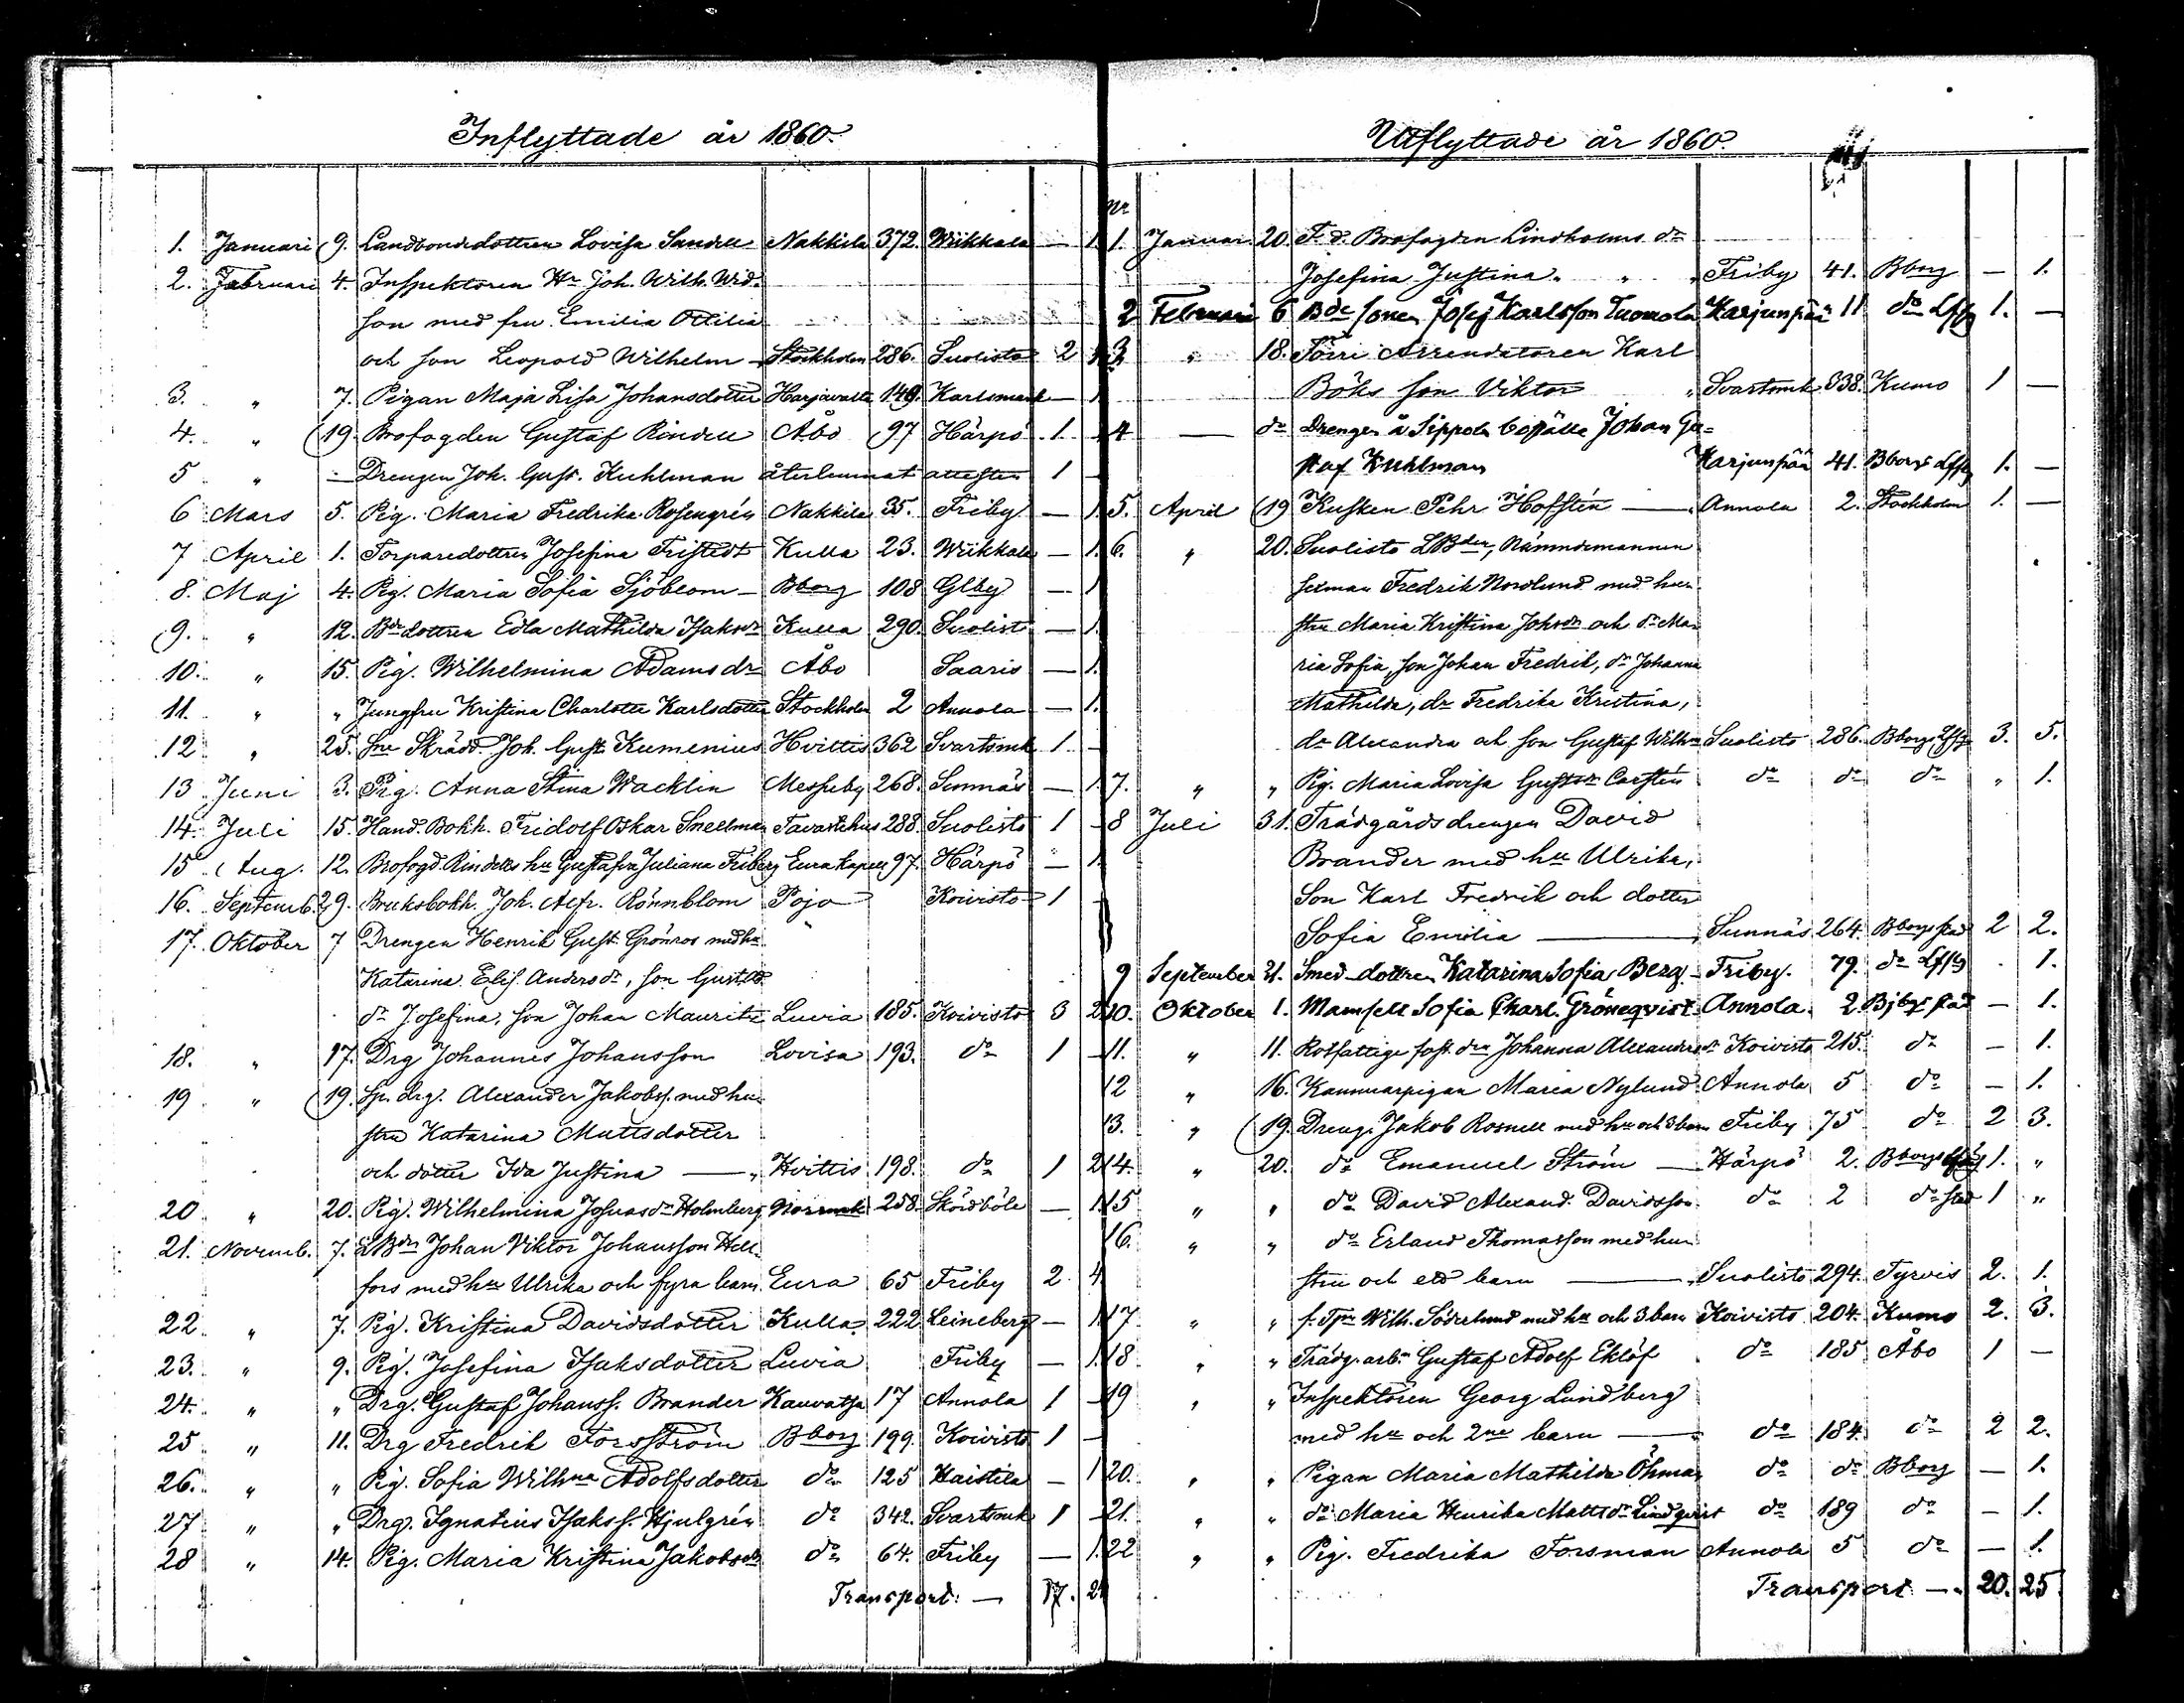 Inflyttade år 1860.
1. Januari 9. Landbondedottren Lovisa Sandell Nakkila 372. Wiikkala — 1.
2. Februari 4. Inspektoren Hr Joh. Wilh. Wid-
son med fru Emilia Ottilia
och son Leopold Wilhelm — Stockholm 286. Suolisto 2
3. " 7. Pigan Maja Lisa Johansdotter Harjavalta 149. Karlsmark — 1
4. " 19. Brofogden Gustaf Rindell Åbo 97 Härpö 1. —
5 " — Drengen Joh. Gust. Kuhlman återlemnat attesten 1 —
6 Mars 5. Pig. Maria Fredrika Rosengrén Nakkila 35. Friby — 1.
7 April 1. Torparedottren Josefina Fristedt Kulla 23. Wiikkala — 1.
8. Maj 4. Pig. Maria Sofia Sjöblom — Bborg 108 Glby — 1
9. " 12. Bdedottren Edla Mathilda Isaksdr Kulla 290. Suolist — 1.
10. " 15. Pig. Wilhelmina Adamsdr Åbo Saaris — 1.
11. " " Jungfru Kristina Charlotta Karlsdotter Stockholm 2 Annola — 1.
12 " 25. Skrädd. Joh. Gust. Kumenius Hvittis 362 Svartsmk 1. —
13 Juni 3. Pig. Anna Stina Wacklin Messuby 268. Sunnäs — 1.
14. Juli 15. Hand. Bokh. Fridolf Oskar Snellman Tavastehus 288. Suolisto 1 —
15 Aug. 12. Brofogd. Rindells hu Gustafva Juliana Friberg Eura kapell 97. Härpö — 1.
16. Septemb. 29. Bruksbokh. Joh. Alfr. Rönnblom Pojo Koivisto 1 —
17. Oktober 7 Drengen Henrik Gust. Grönros med hu
Katarina Elis. Andersdr, son Gust.
dr Josefina, son Johan Mauritz Luvia 185. Koivisto 3 2
18. " 17. Drg Johannes Johansson Lovisa 193. do 1 —
19 " 19. Sp. drg. Alexander Jakobss. med hu-
stru Katarina Mattsdotter
och dotter Ida Justina — " Hvittis 198. do 1 2
20 " 20. Pig. Wilhelmina Josuasdr Holmberg Norrmark 258. Skördböle — 1
21. Novemb. 7. LBdn Johan Viktor Johansson Hell-
fors med hu Ulrika och fyra barn Eura 65 Friby 2. 4
22 " 7. Pig. Kristina Davidsdotter Kulla 222 Leineberg — 1.
23. " 9. Pig. Josefina Isaksdotter Luvia Friby — 1.
24. " " Drg. Gustaf Johanss. Brander Kauvatsa 17 Annola 1 —
25 " 11. Drg Fredrik Forsström Bborg 199. Koivisto 1 —
26. " " Pig. Sofia Wilhna Adolfsdotter do 125 Haistila — 1
27 " " Drg. Ignatius Isakss. Hjulgrén do 342. Svartsmk 1 —
28 " 14. Pig. Maria Kristina Jakobsdr do 64. Friby — 1.
Transport. — 17.
Utflyttade år 1860.
Nr
1. Januari 20. F. d. Brofogden Lindholms dr
Josefina Justina " " Friby 41. Bborg — 1.
2 Februari 6 Bde sonen Josef Karlsson Tuomola Karjunpää 11 do Lffg 1. —
3 " 18. Förre Arrendatoren Karl
Böks son Viktor " Svartsmk 338. Kumo 1 —
4 — do Drengen å Sippola boställe Johan Gu-
staf Kuhlman Karjunpää 41. Bborgs Lffg 1. —
5. April 19 Kusken Pehr Hoffstén — Annola 2. Stockholm 1. —
6. " 20. Suolisto LBden, Nämndemannen
sexman Fredrik Nordlund med hu-
stru Maria Kristina Johsdr och dr Ma-
ria Sofia, son Johan Fredrik, dr Johanna
Mathilda, dr Fredrika Kristina,
dr Alexandra och son Gustaf Wilhm Suolisto 286. Bborgs Lffg 3. 5.
7. " " Pig. Maria Lovisa Gustsdr Carstén do do do " 1.
8 Juli 31. Trädgårdsdrengen David
Brander med hu Ulrika,
Son Karl Fredrik och dotter
Sofia Emilia — Sunnäs 264. Bborgs stad 2 2.
9 September 21. Smed-dottren Katarina Sofia Berg — Friby. 79. do Lffg . 1.
10. Oktober 1. Mamsell Sofia Charl. Gröneqvist Annola. 2. Bjbgs stad — 1.
11. " 11. Rotfattige Johanna Alexandersdr Koivisto 215. do — 1.
12 " 16. Kammarpigan Maria Nylund Annola 5 do — 1.
13. " 19. Dreng. Jakob Rosnell med hu och 3 barn Friby 75 do 2 3.
14. " 20. do Emanuel Ström — Härpö 2. Bborgs Lffg 1. "
15 " " do David Alexand. Davidsson do 2 do stad 1 "
16. " " do Erland Thomasson med hu-
stru och ett barn — Suolisto 294. Tyrvis 2. 1.
17 " " f. Tpn Wilh. Söderlund med hu och 3 barn Koivisto 204. Kumo 2. 3.
18 " " Trädg. arb. Gustaf Adolf Eklöf do 185 Åbo 1 —
19 " " Inspektoren Georg Lundberg
med hu och 2ne barn — do 184. do 2 2.
20. " " Pigan Maria Mathilda Öhman do do Bborg — 1.
21. " " do Maria Henrika Mattsdr Lindqvist do 189 do — 1.
22 " " Pig. Fredrika Forsman Annola 5 do — 1.
Transport — 20. 25